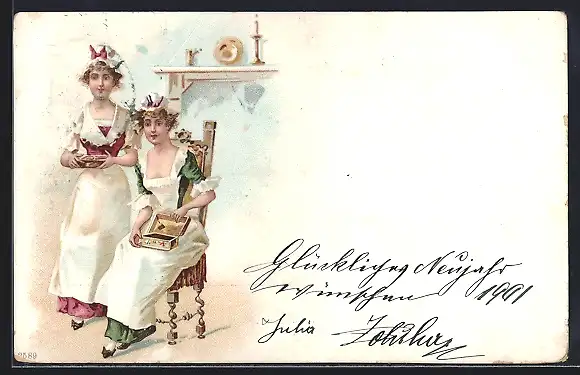 Glückliches Neujahr
wünschen 1901
Julia
2589